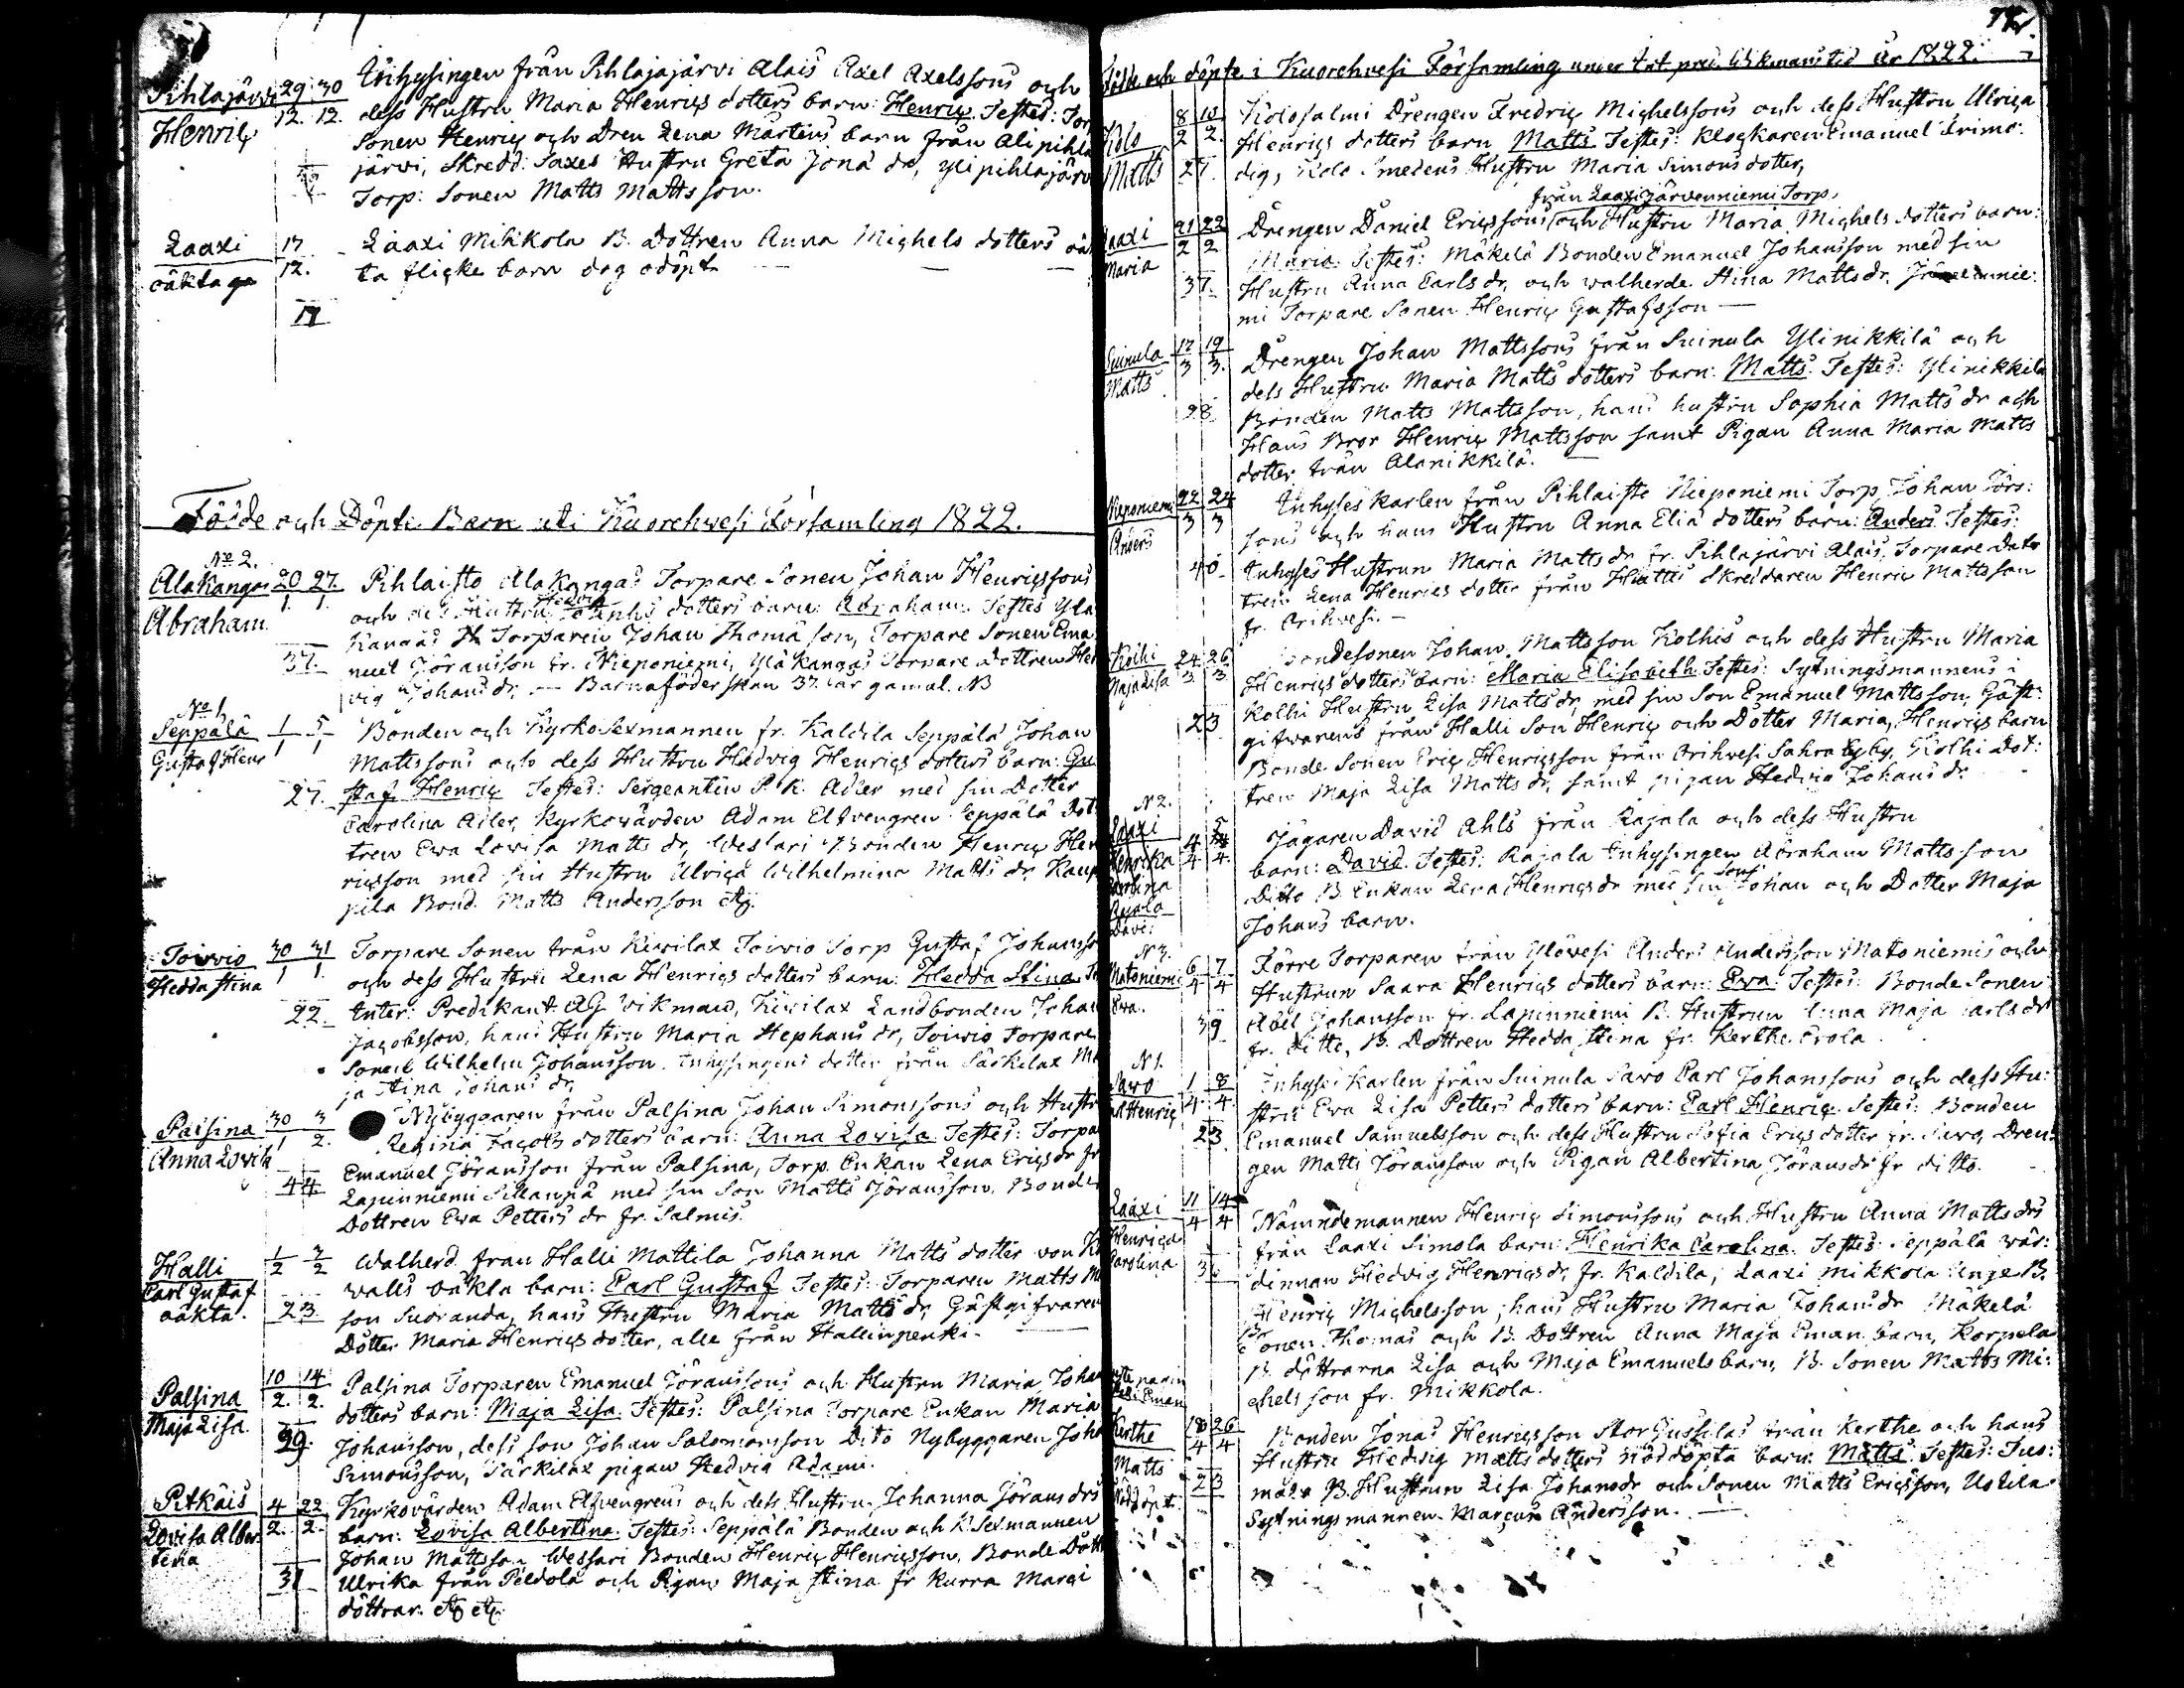 Pihlajärvi 29 30 Inhysingen från Pihlajajärvi Alais Axel Axelssons och
Henric 12. 12. dess Hustru Maria Henrics dotters barn: Henric Testes: Torp
Sonen Henric och Dren Lena Mårtens barn från Alipihla
järvi, Skredd: Saxes Hustru Greta Jona dr, ylipihlajärv
Torp: Sonen Matts Mattsson.
Laaxi 17 Laaxi Mikkola B. dottren Anna Michels dotters oäk
oäkta 12. ta flicke barn dog odöpt
17
Födde och Döpte Barn uti Kuorehwesi Församling 1822.
No 2.
Alakangas 20 27. Pihlaisto Alakangas Torpare Sonen Johan Henricssons
Abraham 1. 1. och des Hustru dotters barn: Abraham. Testes Yla
kangas Torparen Johan Thomä son, Torpare Sonen Ema
37. nuel Göransson fr. Nieponiemi, Yläkangas Torpare dottren Hed
vig Johans dr. — Barnaföderskan 37. år gamal. NB
No 1.
Seppälä 1 5 Bonden och KyrkoSexmannen fr. Kaldila Seppälä Johan
Gustaf Henr 1 1 Mattssons och dess Hustru Hedvig Henrics dotters barn: Gu
27. staf Henric Testes: Sergeanten P. K. Adler med sin Dotter
Carolina Adler, Kyrkovärden Adam Elfvengren Seppälä dot
tren Ewa Lovisa Matts dr, Weslari Bonden Henric Hen
ricsson med sin Hustru Ulrica Wilhelmina Matts dr Kaup
pila Bond. Matts Andersson etc.
Toivio 30 31 Torpare Sonen från Kiwilax Toivio Torp Gustaf Johansso
Hedda Stina 1 1. och dess Hustru Lena Henrics dotters barn: Hedda Stina. Te
22. Inter: Predikant AG Wikman, Kiwilax Landbonden Johan
Jacobsson, hans Hustru Maria Stephans dr, Toivio Torpare
Sonen Wilhelm Johansson. Inhysingens dotter från Särkilax Ma
ja Stina Johans dr.
Palsina 30 3 Nybyggaren från Palsina Johan Simonssons och Hustr
Anna Lovisa 1 2. Regina Jacobs dotters barn: Anna Lovisa Testes: Torpa
44 Emanuel Göransson från Palsina, Torp. Enkan Lena Erics dr fr
Lapinniemi Sillanpä med sin Son Matts Göransson. Bonde
Dottren Ewa Petters dr fr. Salmis.
Halli 1 2 Walherd. från Halli Mattila Johanna Matts dotter von
Carl Gustaf 2 2 walls oäkta barn: Carl Gustaf Testes: Torparen Matts
oäkta. 23. son Suoranda, hans Hustru Maria Matts dr, Gästgifvaren
Dotter Maria Henrics dotter, alle från Hallinpenki.
Palsina 10 14 Palsina Torparen Emanuel Göranssons och Hustru Maria Johan
Maja Lisa. 2. 2. dotters barn: Maja Lisa. Testes: Palsina Torpare Enkan Maria
39. Johansson, dess son Johan Salomonsson Dito Nybyggaren Joha
Simonsson, Särkilax pigan Hedvig Adami.
Pitkäis 4 22 Kyrkovärden Adam Elfvengrens och dess Hustru Johanna Görans drs
Lovisa Alber 2. 2. barn: Lovisa Albertina. Testes: Seppälä Bonden och K. Sexmannen
tina Johan Mattsson Wessari Bonden Henric Henricsson, Bonde Dott
31 Ulrika från Peldola och Pigan Maja Stina fr Kurra Marci
döttrar. etc etc.
Födde och döpte i Kuorehvesi Församling under Int pred. Wikmans tid år 1822.
Kolo 8 10 Kolosalmi Drengen Fredric Michelssons och dess Hustru Ulrica
2 2. Henrics dotters barn Matts Testes: Klockaren Emanuel Frimo
Matts 27. dig, Kolo Smedens Hustru Maria Simons dotter,
från Laaxi Järvenniemi Torp.
Laaxi 21 22 Drengen Daniel Ericssons och Hustru Maria Michels dotters barn:
2 2 Maria. Testes: Mäkelä Bonden Emanuel Johansson med sin
Maria 37. Hustru Anna Carls dr, och walherde. Stina Matts dr. Järvennie:
mi Torpare Sonen Henric Gustafsson —
Suinula 17 19 Drengen Johan Mattssons från Suinula Ylinikkilä och
Matts 3 3. dess Hustru Maria Matts dotters barn: Matts. Testes: Ylinikkilä
28. Bonden Matts Mattsson, hans hustru Sophia Matts dr och
Hans Bror Henric Mattsson samt Pigan Anna Maria Matts
dotter från Alanikkilä.
Nieponiemi 22 24 Inhyses karlen från Pihlaisto Nieponiemi Torp Johan Görs:
Anders 3 3 sons och hans Hustru Anna Eliä dotters barn: Anders Testes:
40 Inhyses Hustrun Maria Matts dr fr. Pihlajärvi Alais, Torpare dot
tren Lena Henrics dotter från Skreddaren Henric Mattsson
fr. Orihvesi. —
Kolhi 24 26 Bondesonen Johan Mattsson Kolhis och dess Hustru Maria
Maja Lisa 3 3 Henrics dotters barn: Maria Elisabeth Testes: Sytningsmannens i
23 Kolhi Hustru Lisa Matts dr, med sin Son Emanuel Mattsson, Gäst:
gifvarens från Halli Son Henric och Dotter Maria, Henrics barn
Bonde Sonen Eric Henricsson från Orihvesi Sahra by. Kolhi Dot:
tren Maja Lisa Matts dr, samt pigan Hedvig Johans dr.
N 2.
Laaxi 4 5 Jägaren David Ahls från Rajala och dess Hustru
Henrika 4 4. barn: David. Testes: Rajala Inhysingen Abraham Mattsson
Carolina Ditto B. Enkan Lena Henrics dr med sin Son Johan och Dotter Maja
Rajala Johans barn.
David
N 3.
Matoniemi 6 7 Förre Torparen från Ylövesi Anders Andersson Matoniemis och
Ewa. 4 4 Hustrun Saara Henrics dotters barn: Ewa. Testes: Bonde Sonen
39 Abel Johansson fr. Lapinniemi B. Hustrun Anna Maja Carls dr
fr. Ditto, B. Dottren Hedda Stina fr. Kerthe Erola
N 1.
Sawo 1 8 Inhyses Karlen från Suinula Sawo Carl Johanssons och dess Hu:
Henric 4 4. stru Ewa Lisa Petters dotters barn: Carl Henric. Testes: Bonden
23 Emanuel Samuelsson och dess Hustru Sofia Erics dotter fr. Sawo, Dren:
gen Matts Göransson och Pigan Albertina Görans dr fr ditto.
Laaxi 11 14 Nämndemannen Henric Simonssons och Hustru Anna Matts drs
Henrica 4 4 från Laaxi Simola barn: Henrika Carolina. Testes: Seppälä wär:
Carolina dinnan Hedvig Henrics dr, fr. Kaldila, Laaxi Mikkola Unge B.
Henric Michelsson, hans Hustru Maria Johans dr Mäkelä
Sonen Thomas och B. Dottren Anna Maja Eman. barn, Korpela
B. döttrarna Lisa och Maja Emanuels barn, B. Sonen Matts Mi:
chelsson fr. Mikkola.
Kerthe 18 26 Bonden Jonas Henricsson Stor Jussilas från Kerthe och hans
4 4 Hustru Hedvig Matts dotters nöddöpta barn. Matts. Testes: Tuo:
Matts 23 mala B. Hustrun Lisa Johans dr och Sonen Matts Ericsson, Ustila
Nöddöpt. Sytningsmannen Marcus Andersson. —